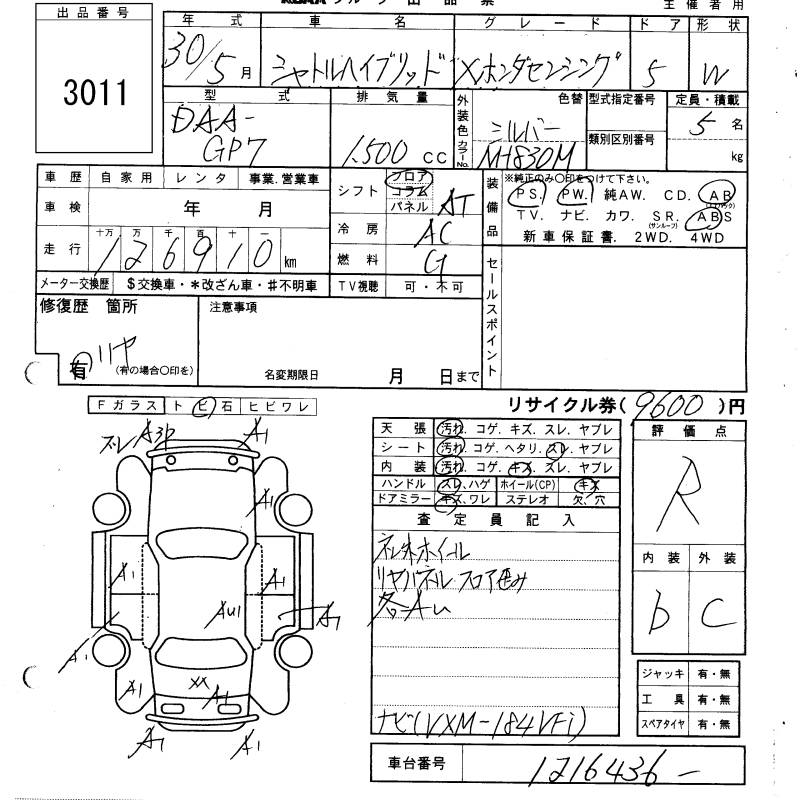 主催者用
出品番号
3011
年式 車名 グレード ドア 形状
30/5月 シャトルハイブリッド Xホンダセンシング 5 W
型式 排気量 外装色 カラーNo. 色替 型式指定番号 定員・積載
DAA-GP7 1,500cc シルバー NH830M 類別区別番号 5名 kg
車歴 自家用 レンタ 事業.営業車
車検 年 月
走行 十万 万 千 百 十 一
126910km
メーター交換歴 $交換車・*改ざん車・#不明車
シフト フロア コラム パネル AT
冷房 AC
燃料 G
TV視聴 可・不可
装備品 ※純正のみ〇印をつけて下さい。
PS. PW. 純AW. CD. AB (エアバック)
TV. ナビ. カワ. SR. (サンルーフ) ABS
新車保証書. 2WD. 4WD
セールスポイント
修復歴 箇所
有 リヤ
(有の場合〇印を)
注意事項
名変期限日 月 日まで
リサイクル券(9600)円
Fガラス トビ石 ヒビワレ
天張 汚れ.コゲ.キズ.スレ.ヤブレ
シート 汚れ.コゲ.ヘタリ.スレ.ヤブレ
内装 汚れ.コゲ.キズ.スレ.ヤブレ
ハンドル スレ、ハゲ ホイール(CP) キズ
ドアミラー キズ、ワレ ステレオ 欠、穴
査定員記入
リヤパネル フロア歪み
ナビ(VXM-184VFi)
評価点
R
内装 外装
b C
ジャッキ 有・無
工具 有・無
スペアタイヤ 有・無
車台番号 1216436
ズレ A3P A1
A1
A1 A1
AU1 A1
A1
A1 XX A1
A1 A1